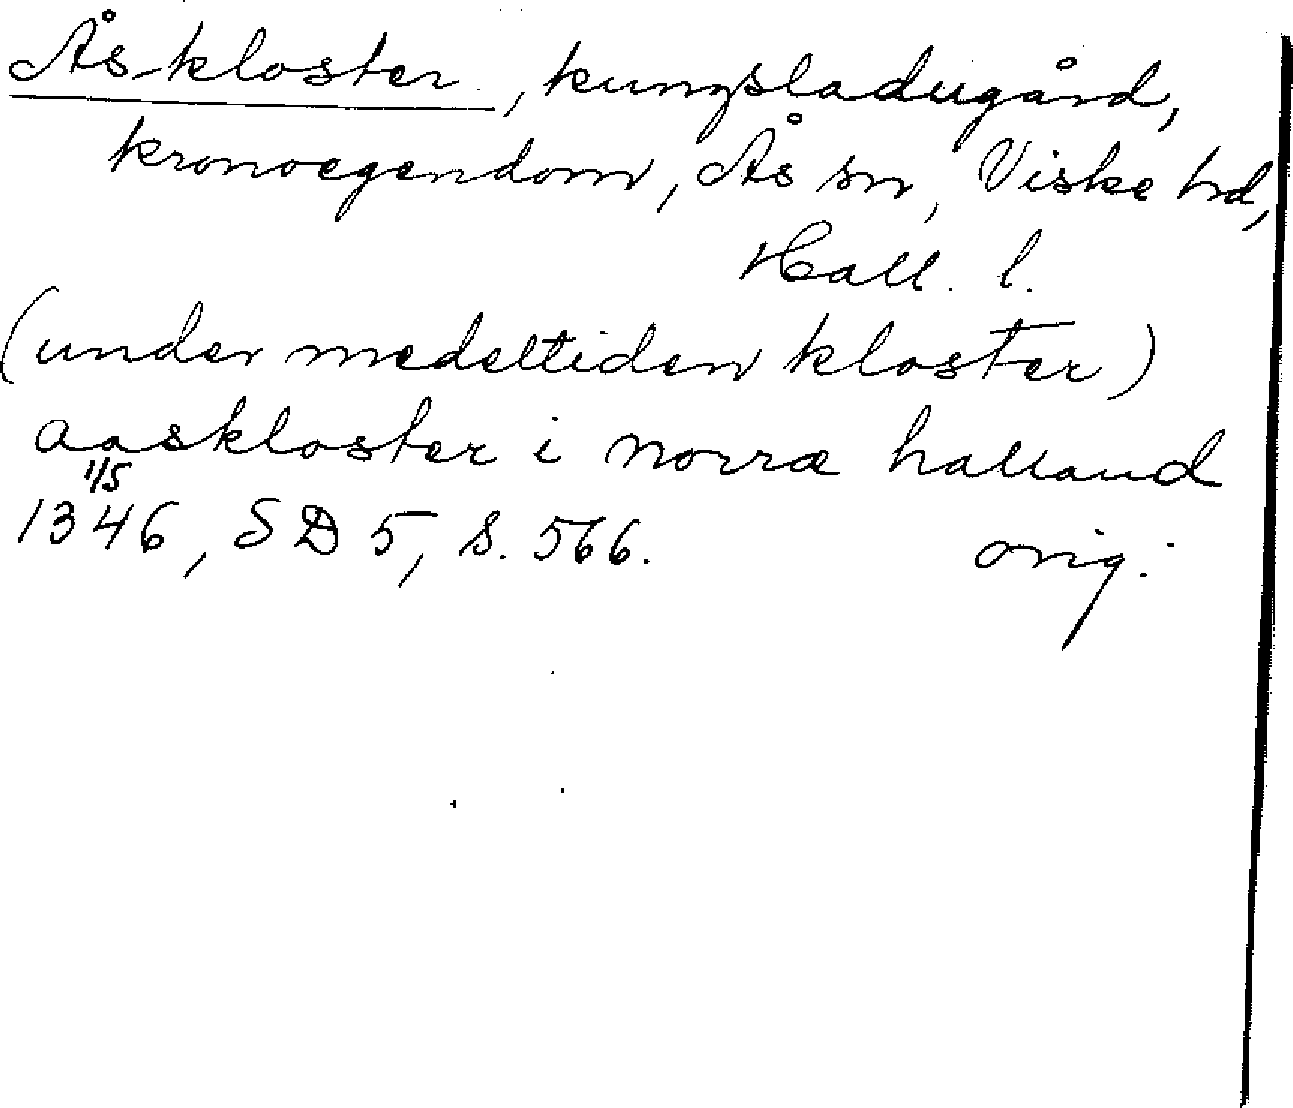 Ås-kloster, kungsladugård,
kronoegendom, Ås sn, Viske hd,
Hall. l.
(under medeltiden kloster)
aaskloster i norræ halland
1/5
1346, SD 5, s. 566. orig.